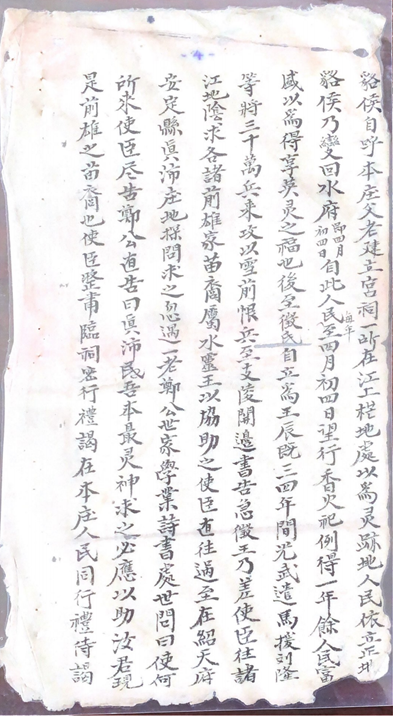 貉侯自呼本庄父老建立宮祠一所在江上𣓦地處以為灵跡地人民依立正地
貉侯乃變回水府即四月初四日自此人民每年至四月初四日望行香火祀例得一年餘人民富
盛以為得享英灵之福也後至徵氏自立為王辰既三四年間光武遣馬援刘隆
等將三十萬兵來攻以雪前恨兵至支陵開邊書告急徵王乃差使臣往諸
江地陰求各諸前雄家苗裔屬水靈王以協助之使臣直往過至在紹天府
安定縣真沛庄地探問求之忽遇一老鄭公世家學業詩書處世問曰使何
所求使臣尽告鄭公直告曰真沛民吾本最灵神求之必應以助汝君現
是前雄之苗裔也使臣整肅臨祠密行禮謁在本庄人民同行禮侍謁